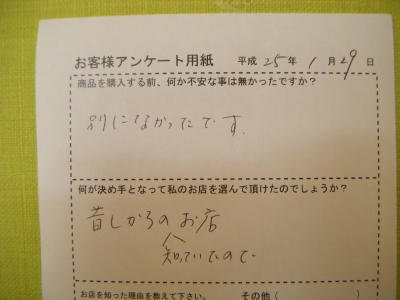 お客様アンケート用紙 平成 25 年 1 月 29 日
商品を購入する前、何か不安な事は無かったですか?
別になかったです.
何が決め手となって私のお店を選んで頂けたのでしょうか?
昔しからのお店
知っていたので
お店を知った理由を教えて下さい。 その他(